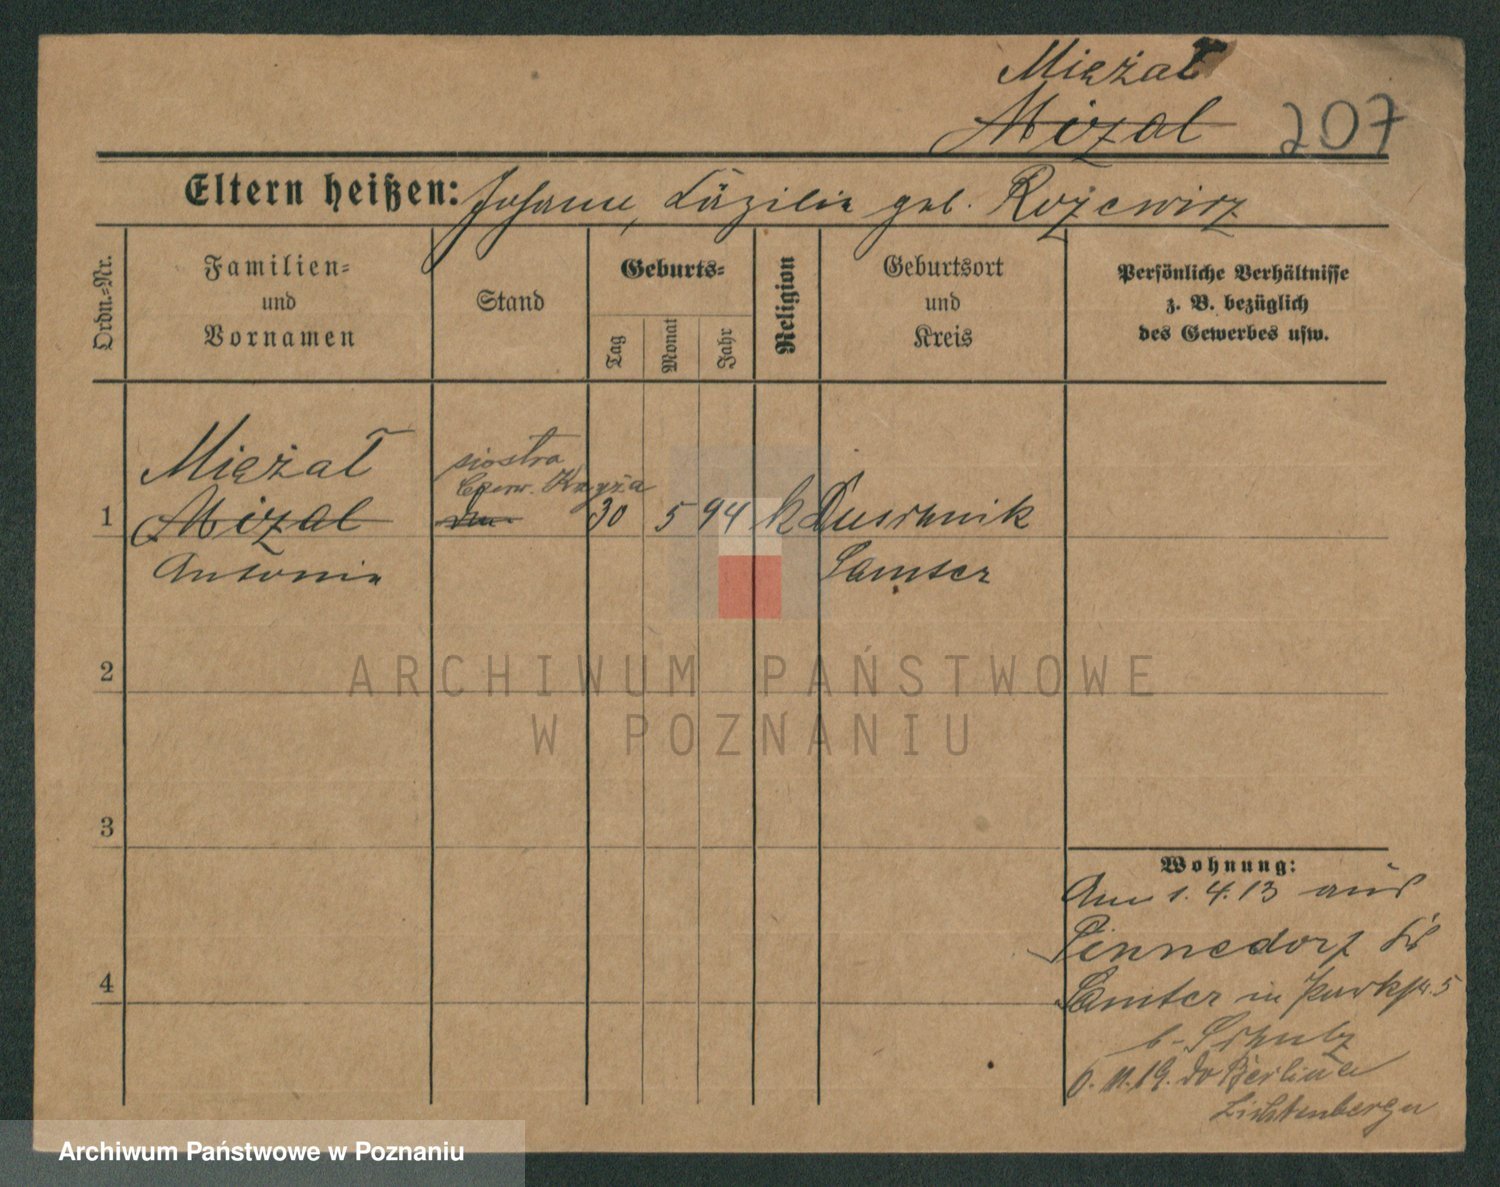 Miężał
Mizal
207
Eltern heißen: Johann, Cäzilie geb. Rozewirz
Ordn.=Nr.
Familien=
und
Vornamen
Stand
Geburts=
Tag
Monat
Jahr
Religion
Geburtsort
und
Kreis
Persönliche Verhältnisse
z. B. bezüglich
des Gewerbes usw.
Miężał
siostra
Czerw. Krzyża
1 Mizal 30 5 94 k Duschnik
Antonie Samter
2
ARCHIWUM PAŃSTWOWE
W POZNANIU
3
Wohnung:
Am 1.4.13 aus
Pinnedorf Kr
4
Samter in Parkstr. 5
b. Schulz
6.11.19. do Berlina
Lichtenberg
Archiwum Państwowe w Poznaniu